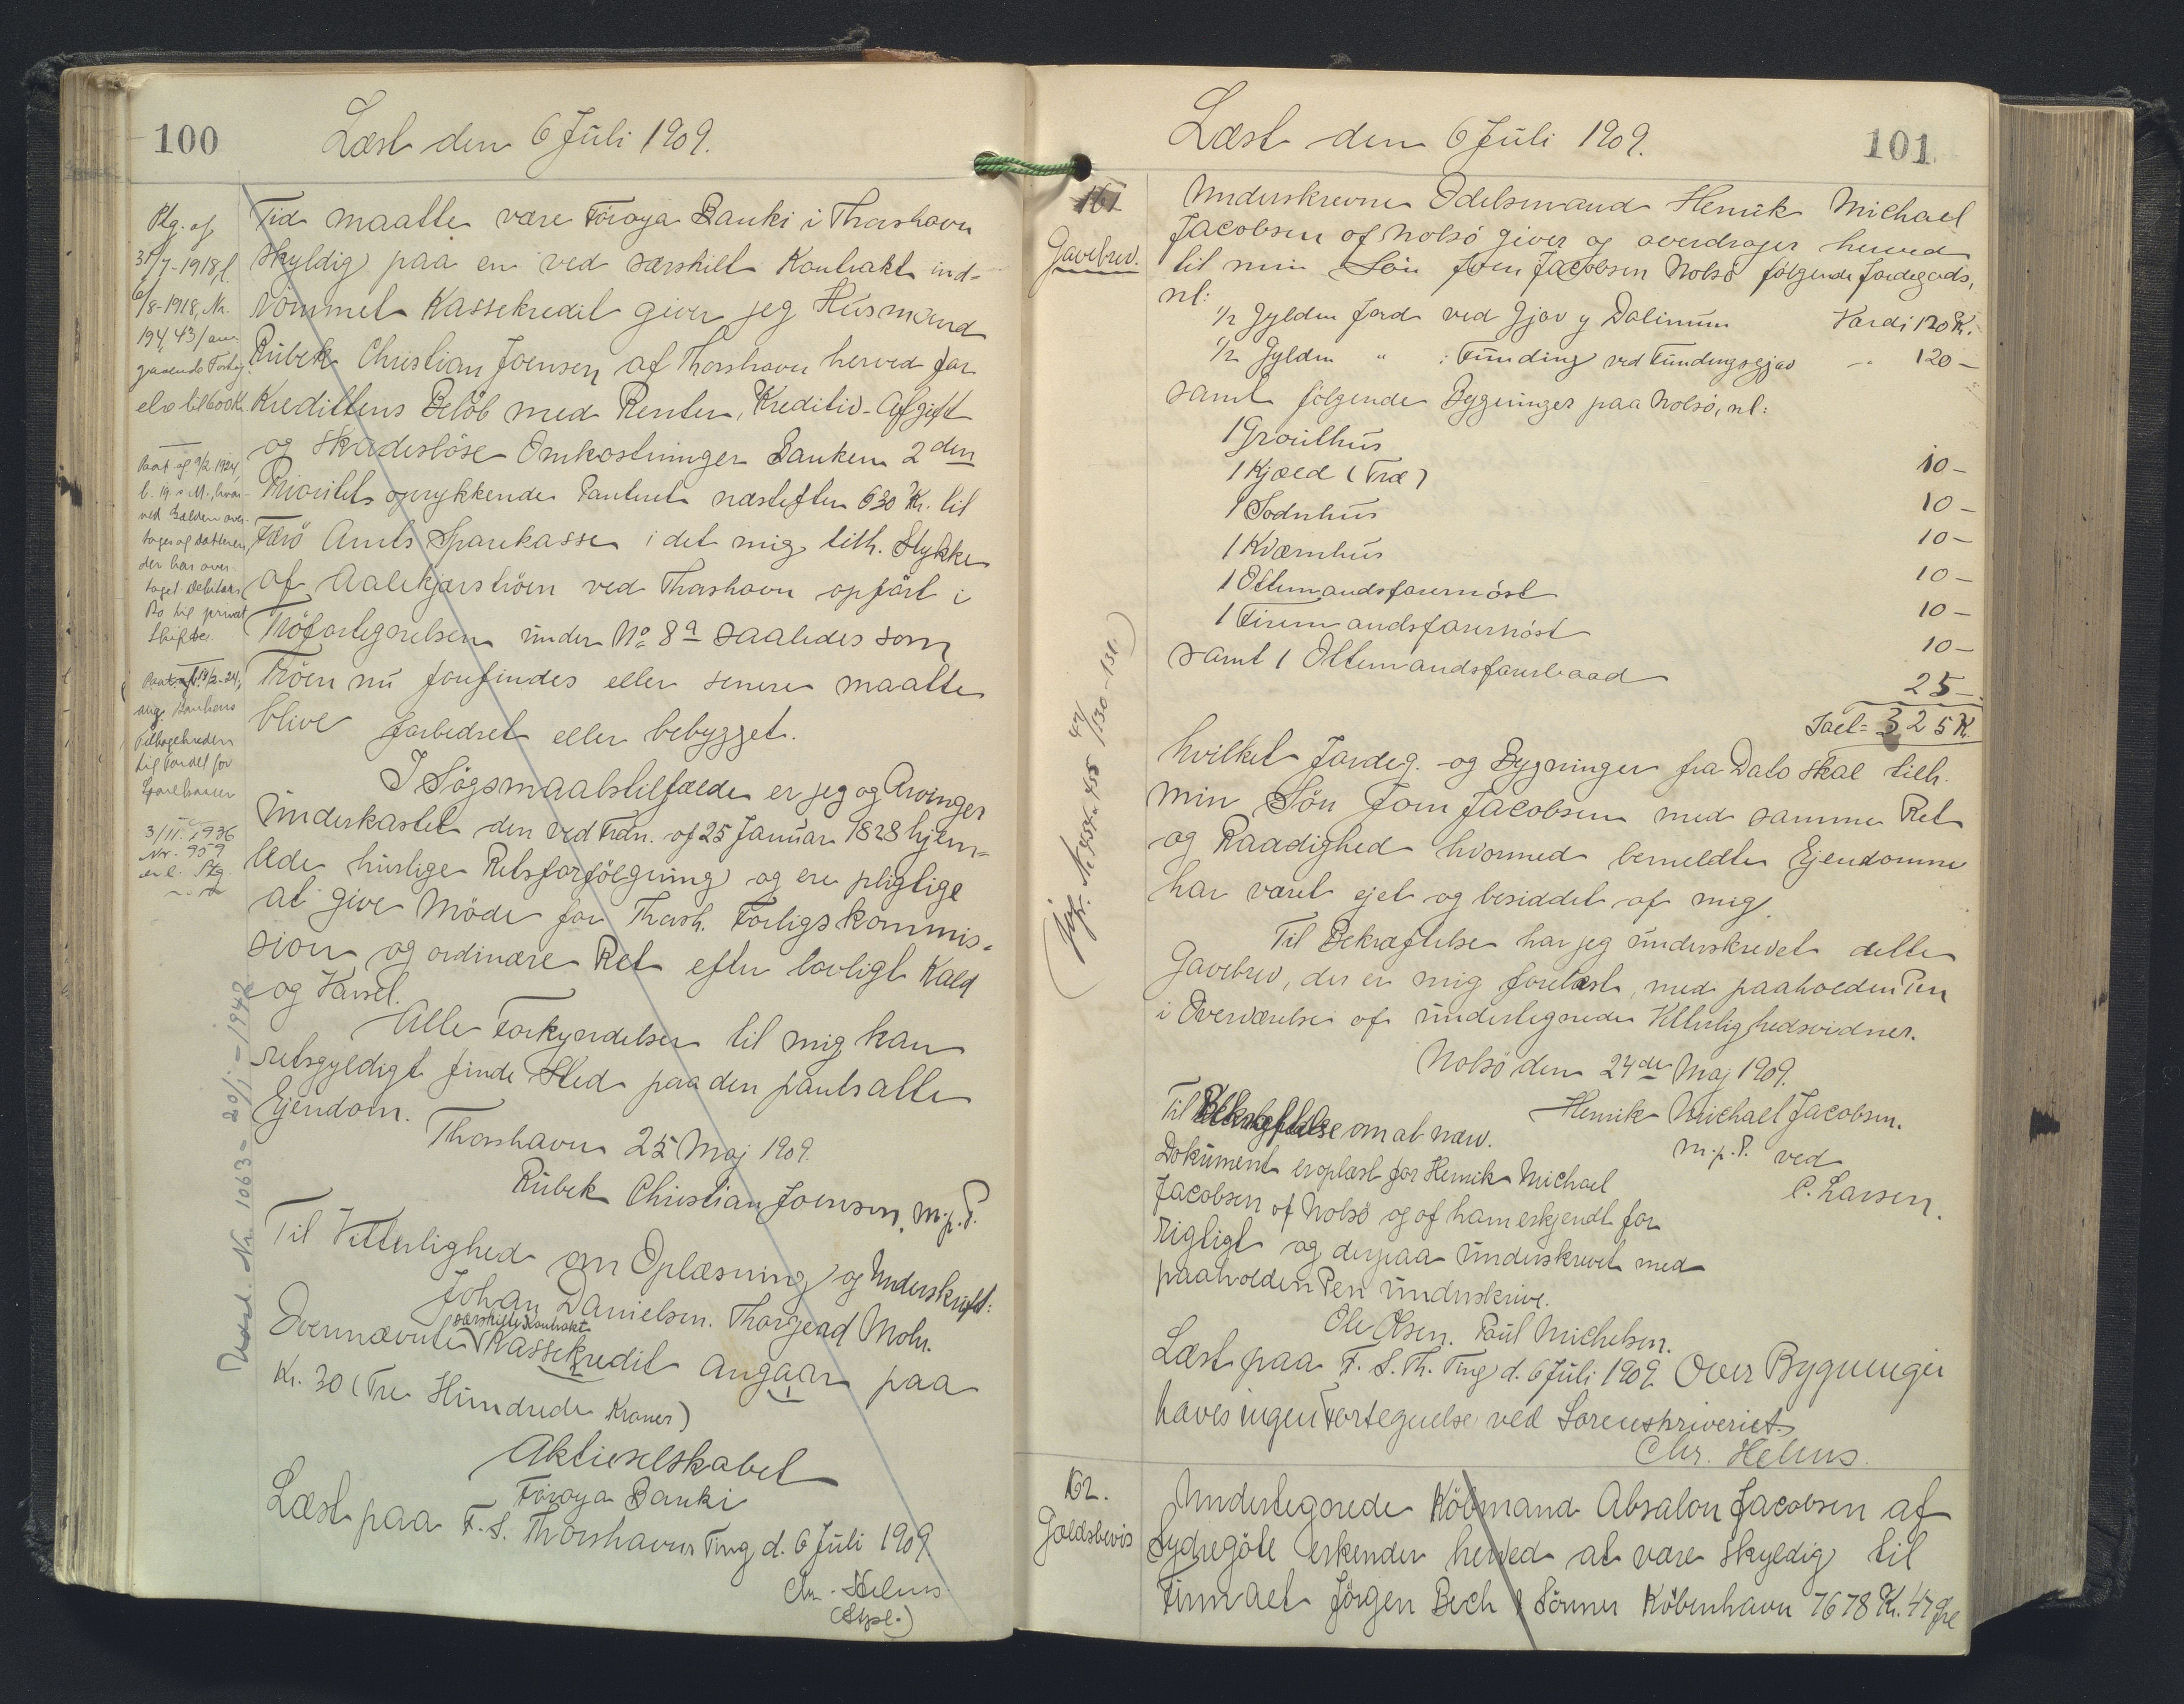 100
Læst den 6 Juli 1909.
Tid maatte være Föroya Banki i Thorshavn
skyldig paa en ved særskilt Kontrakt ind-
römmet Kassekredit giver jeg Husmand
Rubek Christian Joensen af Thorshavn herved for
Kredittens Belöb med Renter, Kreditiv-Afgift
og skadeslöse Omkostninger Banken 2den
Prioritets oprykkende Panteret næstefter 630 Kr. til
Færö Amts Sparekasse i det mig tilh. Stykke
af Aalekjærströen ved Thorshavn opfört i
Tröfortegnelsen under No 8a saaledes som
Tröen nu forefindes eller senere maatte
blive forbedret eller bebygget.
I Sögsmaalstilfælde er jeg og Arvinger
underkastet den ved Frdn. af 25 Januar 1828 hjem-
lede hurtige Retsforfölgning og ere pligtige
at give Möde for Thorsh. Forligskommis-
sion og ordinære Ret efter lovligt Kald
og Varsel.
Alle Forkyndelser til mig kan
retsgyldigt finde Sted paa den pantsatte
Ejendom.
Thorshavn 25 Maj 1909.
Rubek Christian Joensen, m.p.P.
Til Vitterlighed om Oplæsning og Underskrift:
Johan Danielsen. Thorgerd Mohr.
særskilte Kontrakt
Ovennævnte Kassekredit angaar paa
Kr. 30 (Tre Hundrede Kroner)
Aktieselskabet
Föroya Banki
Læst paa F. S. Thorshavns Ting d. 6 Juli 1909.
Chr. Helms
Ptg. af
31/7-1918, l.
6/8-1918, Nr.
194, 43/ an-
gaaende Forhöj
else til 600 Kr.
Paat. af 9/2 1924,
l. 19 s. M., hvor-
ved Gælden over-
tages af Datteren,
der har over-
taget Debitors
Bo til privat
Skifte.
ang. Bankens
Tilbagetræden
til Fordel for
3/11 1936
Nr. 959
Nr. 1063 - 20/1 - 1942
Læst den 6 Juli 1909.
101
161
Gavebrev.
Underskrevne Odelsmand Henrik Michael
Jacobsen af Nolsö giver og overdrager herved
til min Sön Joen Jacobsen Nolsö fölgende Jordegods,
nl:
1/2 Gylden Jord ved Gjov y Dalinum Værdi 120 K.
1/2 Gylden " : Funding ved Fundingsgjov - 120 -
samt fölgende Bygninger paa Nolsö, nl:
1 Grouthus 10 -
1 Kjæld (Træ) 10 -
1 Sodnhus 10 -
1 Kværnhus 10 -
1 Ottemandsfarsnöst 10 -
1 Firemandsfarsnöst 10 -
samt 1 Ottemandsfarsbaad 25 -
Ialt = 325 K.
hvilket Jordeg. og Bygninger fra Dato skal tilh.
min Sön Joen Jacobsen med samme Ret
og Raadighed hvormed bemeldte Ejendomme
har været ejet og besiddet af mig.
Til Bekræftelse har jeg underskrevet dette
Gavebrev, der er mig forelæst, med paaholden Pen
i Overværelse af undertegnede Vitterlighedsvidner.
Nolsö den 24de Maj 1909.
Henrik Michael Jacobsen.
m.p.P. ved
C. Larsen.
Til Bekræftelse om at nærv.
Dokument er oplæst for Henrik Michael
Jacobsen af Nolsö og af ham erkjendt for
rigtigt og derpaa underskrevet med
paaholden Pen underskrive.
Ole Olsen. Paul Michelsen.
Læst paa F. S. Th. Ting d. 6 Juli 1909. Over Bygninger
haves ingen Fortegnelse ved Sorenskriveriet.
Chr. Helms.
162.
Gældsbevis
Undertegnede Köbmand Absalon Jacobsen af
Sydregöte erkender herved at være skyldig til
Firmaet Jörgen Bech & Sönner Köbenhavn 7678 Kr. 47 Öre